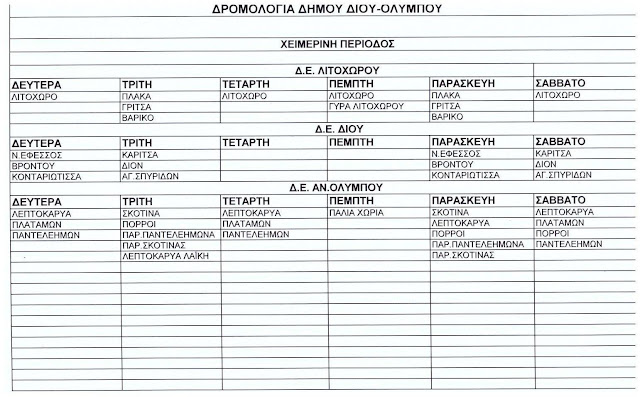 ΔΡΟΜΟΛΟΓΙΑ ΔΗΜΟΥ ΔΙΟΥ-ΟΛΥΜΠΟΥ
ΧΕΙΜΕΡΙΝΗ ΠΕΡΙΟΔΟΣ
Δ.Ε. ΛΙΤΟΧΩΡΟΥ
ΔΕΥΤΕΡΑ ΤΡΙΤΗ ΤΕΤΑΡΤΗ ΠΕΜΠΤΗ ΠΑΡΑΣΚΕΥΗ ΣΑΒΒΑΤΟ
ΛΙΤΟΧΩΡΟ ΠΛΑΚΑ ΛΙΤΟΧΩΡΟ ΛΙΤΟΧΩΡΟ ΠΛΑΚΑ ΛΙΤΟΧΩΡΟ
ΓΡΙΤΣΑ ΓΥΡΑ ΛΙΤΟΧΩΡΟΥ ΓΡΙΤΣΑ
ΒΑΡΙΚΟ ΒΑΡΙΚΟ
Δ.Ε. ΔΙΟΥ
ΔΕΥΤΕΡΑ ΤΡΙΤΗ ΤΕΤΑΡΤΗ ΠΕΜΠΤΗ ΠΑΡΑΣΚΕΥΗ ΣΑΒΒΑΤΟ
Ν.ΕΦΕΣΣΟΣ ΚΑΡΙΤΣΑ Ν.ΕΦΕΣΣΟΣ ΚΑΡΙΤΣΑ
ΒΡΟΝΤΟΥ ΔΙΟΝ ΒΡΟΝΤΟΥ ΔΙΟΝ
ΚΟΝΤΑΡΙΩΤΙΣΣΑ ΑΓ.ΣΠΥΡΙΔΩΝ ΚΟΝΤΑΡΙΩΤΙΣΣΑ ΑΓ.ΣΠΥΡΙΔΩΝ
Δ.Ε. ΑΝ.ΟΛΥΜΠΟΥ
ΔΕΥΤΕΡΑ ΤΡΙΤΗ ΤΕΤΑΡΤΗ ΠΕΜΠΤΗ ΠΑΡΑΣΚΕΥΗ ΣΑΒΒΑΤΟ
ΛΕΠΤΟΚΑΡΥΑ ΣΚΟΤΙΝΑ ΛΕΠΤΟΚΑΡΥΑ ΠΑΛΙΑ ΧΩΡΙΑ ΣΚΟΤΙΝΑ ΛΕΠΤΟΚΑΡΥΑ
ΠΛΑΤΑΜΩΝ ΠΟΡΡΟΙ ΠΛΑΤΑΜΩΝ ΛΕΠΤΟΚΑΡΥΑ ΠΛΑΤΑΜΩΝ
ΠΑΝΤΕΛΕΗΜΩΝ ΠΑΡ.ΠΑΝΤΕΛΕΗΜΩΝΑ ΠΑΝΤΕΛΕΗΜΩΝ ΠΟΡΡΟΙ ΠΟΡΡΟΙ
ΠΑΡ.ΣΚΟΤΙΝΑΣ ΠΑΡ.ΠΑΝΤΕΛΕΗΜΩΝΑ ΠΑΝΤΕΛΕΗΜΩΝ
ΛΕΠΤΟΚΑΡΥΑ ΛΑΪΚΗ ΠΑΡ.ΣΚΟΤΙΝΑΣ